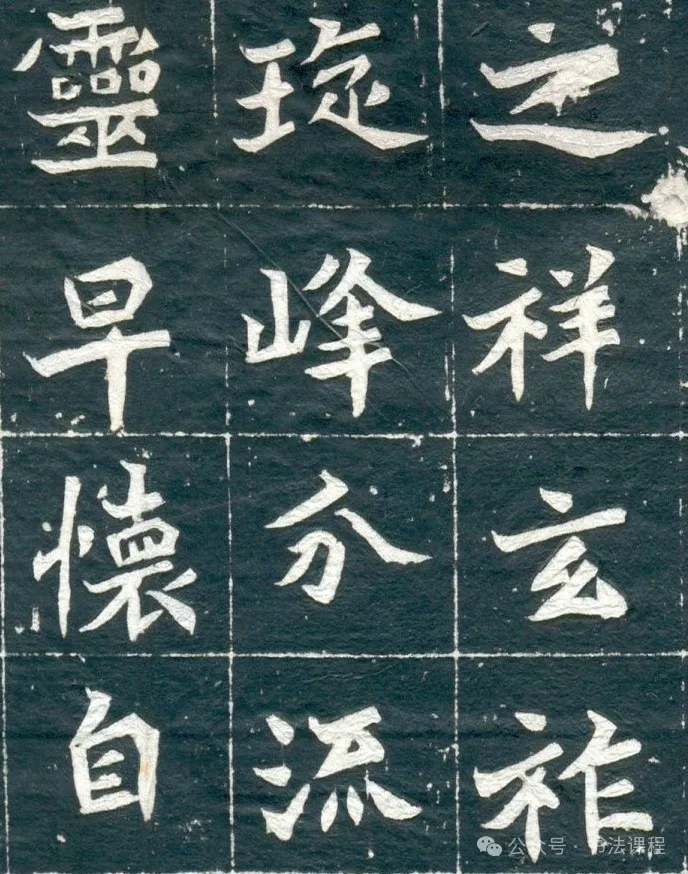 之祥玄祚
琁峰分流
靈早懷自
公众号 · 书法课程